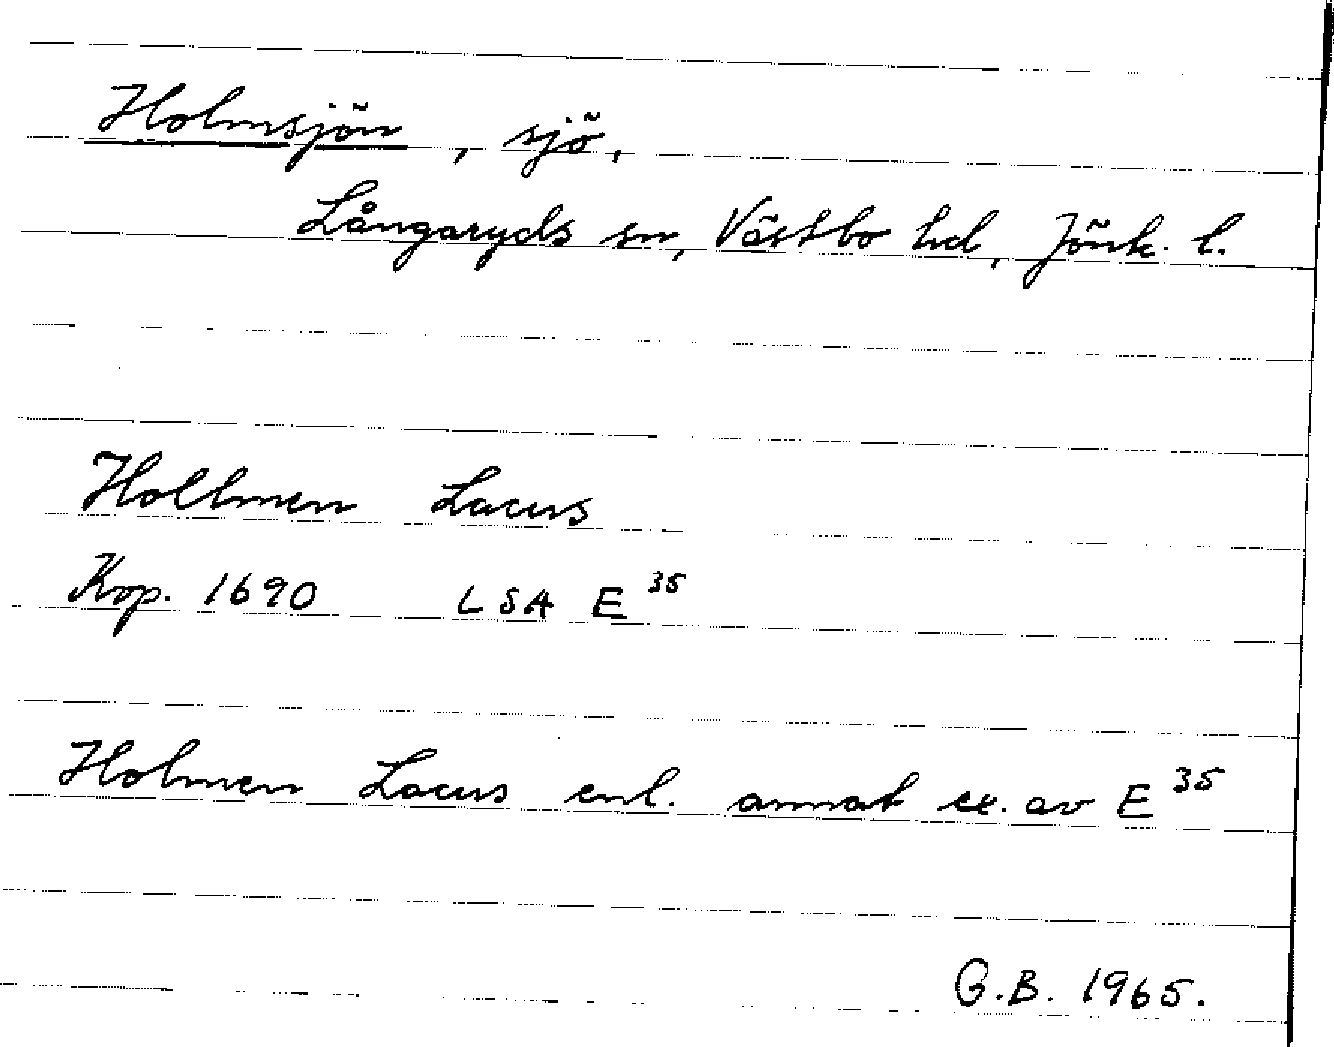 Holmsjön, sjö,
Långaryds sn, Västbo hd, Jönk. l.
Hollmen Lacus
Kop. 1690 LSA E 35
Holmen Lacus enl. annat ex. av E 35
G.B. 1965.